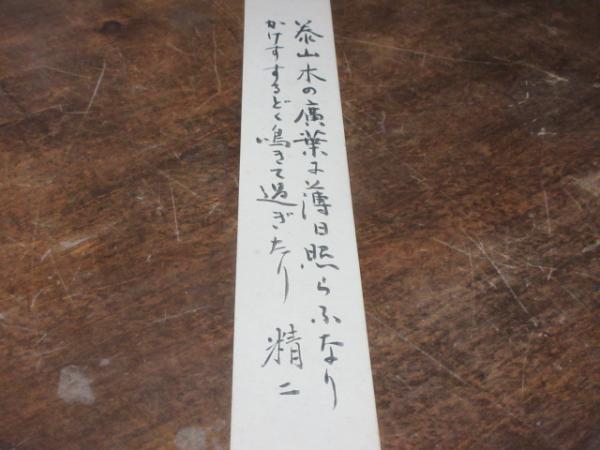 泰山木の廣葉に薄日照らふなり
かけすするどく鳴きて過ぎたり
精二